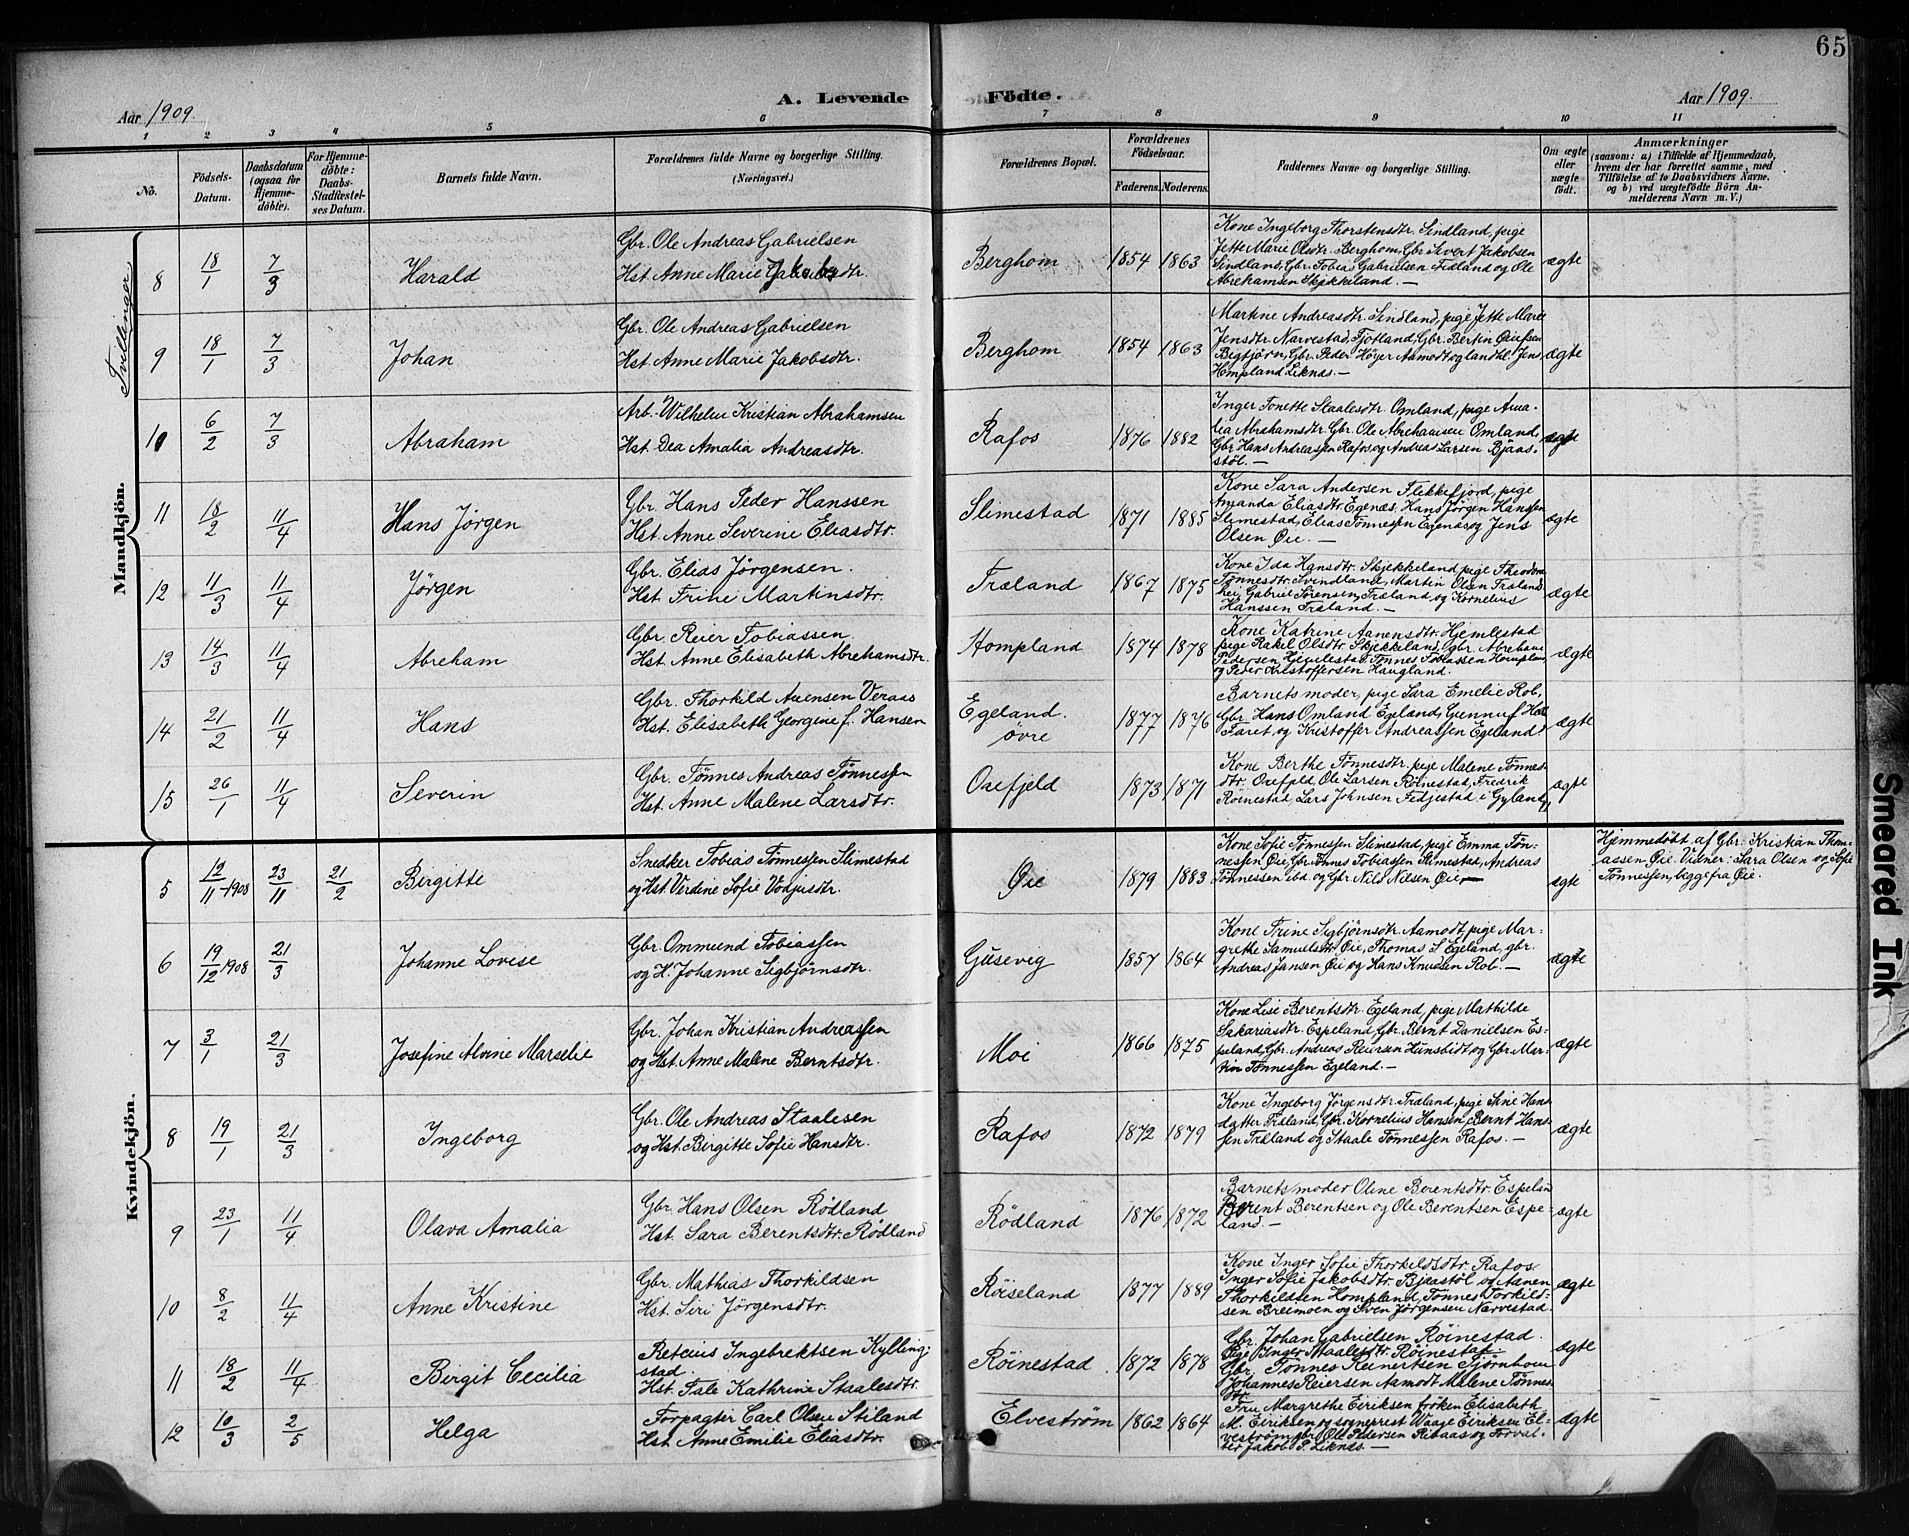 65
Aar 1909.
A. Levende Födte.
Aar 1909.
1 2 3 4 5 6 7 8 9 10 11
No.
Födsels-Datum.
Daabsdatum (ogsaa for Hjemme-döbte).
For Hjemme-döbte: Daabs-Stadfæstel-ses Datum.
Barnets fulde Navn.
Forældrenes fulde Navne og borgerlige Stilling.
(Næringsvei.)
Forældrenes Bopæl.
Forældrenes Födselsaar.
Faderens. Moderens.
Faddernes Navne og borgerlige Stilling.
Om ægte eller uægte födt.
Anmærkninger
(saasom: a) i Tilfælde af Hjemmedaab, hvem der har forrettet samme, med Tilföielse af to Daabsvidners Navne, og b) ved uægtefödte Börn An-melderens Navn m. V.)
Mandkjön.
Tvillinger
8 18/1 7/3 Harald
Gbr. Ole Andreas Gabrielsen
Hst. Anne Marie Jakobsdtr.
Berghom 1854 1863
Kone Ingeborg Thorstensdtr. Sindland, pige
Jette Marie Olsdtr. Berghom, Gbr. Sivert Jakobsen
Sindland, Gbr. Tobias Gabrielsen Fidland og Ole
Abrehamsen Skjekkeland. —
ægte
9 18/1 7/3 Johan
Gbr. Ole Andreas Gabrielsen
Hst. Anne Marie Jakobsdtr.
Berghom 1854 1863
Martine Andreasdtr. Sindland, pige Jette Marie
Jensdtr. Narvestad, Fjotland, Gbr. Bertin
Gbr. Peder Höyer Aamodt og landhl. Jens
Hompland Liknæs. —
ægte
10 6/2 7/3 Abraham
Arb. Wilhelm Kristian Abrahamsen
Hst. Dea Amalia Andreasdtr.
Rafos 1876 1882
Inger Tonette Staalesdtr. Omland, pige Ama-
lia Abrahamsdtr. Gbr. Ole Abrehamsen Omland,
Gbr Hans Andreassen Rafos og Andreas Larsen Bjaas-
støl. —
ægte
11 18/2 11/4 Hans Jørgen
Gbr. Hans Peder Hanssen
Hst. Anne Severine Eliasdtr.
Slimestad 1871 1885
Kone Sara Andersen Flekkefjord, pige
Amanda Eliasdtr. Egenæs, Hans Jørgen Hanssen
Slimestad, Elias Tønnesen Egenæs og Jens
Olsen Øie. —
ægte
12 11/3 11/4 Jørgen
Gbr. Elias Jørgensen.
Hst. Trine Martinsdtr.
Træland 1867 1875
Kone Ida Hansdtr. Skjekkeland, pige Theodora
Tønnesdtr. Svindland, Martin Olsen Træland-
hei, Gabriel Sørensen, Træland og Kornelius
Hanssen Træland. —
ægte
13 14/3 11/4 Abreham
Gbr. Reier Tobiassen
Hst. Anne Elisabeth Abrehamsdtr.
Hompland 1874 1878
Kone Katrine Aanensdtr. Hjemlestad
pige Rakel Olsdtr. Skjekkeland, gbr. Abreham
Pedersen Hjemlestad, Tønnes Tobiassen Hompland
og Peder Kristoffersen Haugland.
ægte
14 21/2 11/4 Hans
Gbr. Thorkild Auensen Veraas
Hst. Elisabeth Georgine f. Hansen
Egeland.
øvre
1877 1876
Barnets moder, pige Sara Emelie Rob,
Gbr. Hans Omland Egeland, Gunnuf
Faret og Kristoffer Andreassen Egeland
ægte
15 26/1 11/4 Severin
Gbr. Tønnes Andreas Tønnessen
Hst. Anne Malene Larsdtr.
Osefjeld 1873 1871
Kone Berthe Tønnesdtr. pige Malene Tønnes-
dtr. Osefjeld, Ole Larsen Røinestad, Fredrik
Røinestad, Lars Johnsen Fedjestad i Gyland
ægte
Kvindekjön.
5 12/11-1908 23/11 21/2 Birgitte
Snedker Tobias Tønnessen Slimestad
og Hst. Verdine Sofie Vodjusdtr.
Øie 1879 1883
Kone Sofie Tønnessen Slimestad, pige Emma Tøn-
nessen Øie, Gbr. Tønnes Tobiassen Slimestad, Andreas
Tønnessen ibd. og Gbr. Nils Nilsen Øie. —
ægte
Hjemmedøbt af Gbr. Kristian Thom-
assen Øie. Vidner: Sara Olsen og Sofie
Tønnessen, begge fra Øie.
6 19/12 1908 21/3 Johanne Lovise
Gbr. Ommund Tobiassen
og H. Johanne Sigbjørnsdtr.
Gusevig 1857 1864
Kone Trine Sigbjørnsdtr. Aamodt, pige Mar-
grethe Samuelsdtr. Øie, Thomas S. Egeland, gbr.
Andreas Jansen Øie og Hans Knudsen Rob. —
ægte
7 3/1 21/3 Josefine Alvine Marselie
Gbr. Johan Kristian Andreassen
og Hst. Anne Malene Berntsdtr.
Moi 1866 1875
Kone Lise Berentsdtr. Egeland, pige Mathilde
Sakariasdtr. Espeland, Gbr. Bernt Danielsen Es-
peland, Gbr. Andreas Reiersen Hunsbidt og Gbr. Mar-
tin Tønnessen Egeland. —
ægte
8 19/1 21/3 Ingeborg
Gbr. Ole Andreas Staalesen
og Hst. Birgitte Sofie Hansdtr.
Rafos 1872 1879
Kone Ingeborg Jørgensdtr. Træland, pige Sine Hans-
datter Træland, Gbr. Kornelius Hansen, Bernt Hans-
sen Træland og Staale Tønnessen Rafos. —
ægte
9 23/1 11/4 Olava Amalia
Gbr. Hans Olsen Rødland
Hst. Sara Berentsdtr. Rødland
Rødland 1876 1872
Barnets moder Oline Berentsdtr. Espeland
Berent Berentsen og Ole Berentsen Espe-
land. —
ægte
10 8/2 11/4 Anne Kristine
Gbr. Mathias Thorkildsen
Hst. Siri Jørgensdtr.
Røiseland 1877 1889
Kone Inger Sofie Thorkildsdtr. Rafos
Inger Sofie Jakobsdtr. Bjeastøl og Aanen
Thorkildsen Hompland, Tønnes Torkild-
sen Breimoen og Sven Jørgensen Narvestad.
ægte
11 18/2 11/4 Birgit Cecilia
Retcius Ingebrektsen Kylling-
stad
Hst. Tale Kathrine Staalesdtr.
Røinestad. 1872 1878
Gbr. Johan Gabrielsen Røinestad.
Pige Inger Staalesdtr. Røinestad
Gbr. Tønnes Reinertsen Tjørnhom
Johannes Reiersen Aamodt Malene Tønnes-
dtr.
ægte
12 10/3 2/5 Helga
Forpagter Carl Olsen Stiland
Hst. Anne Emilie Eliasdtr.
Elvestrøm 1862 1864
Fru Margrethe Eiriksen frøken Elisabeth
M. Eiriksen og sogneprest Waage Eiriksen El-
vestrøm, gbr. Ole Pedersen Ribaas og Forval-
ter Jakob P. Liknæs. —
ægte
Smeared Ink